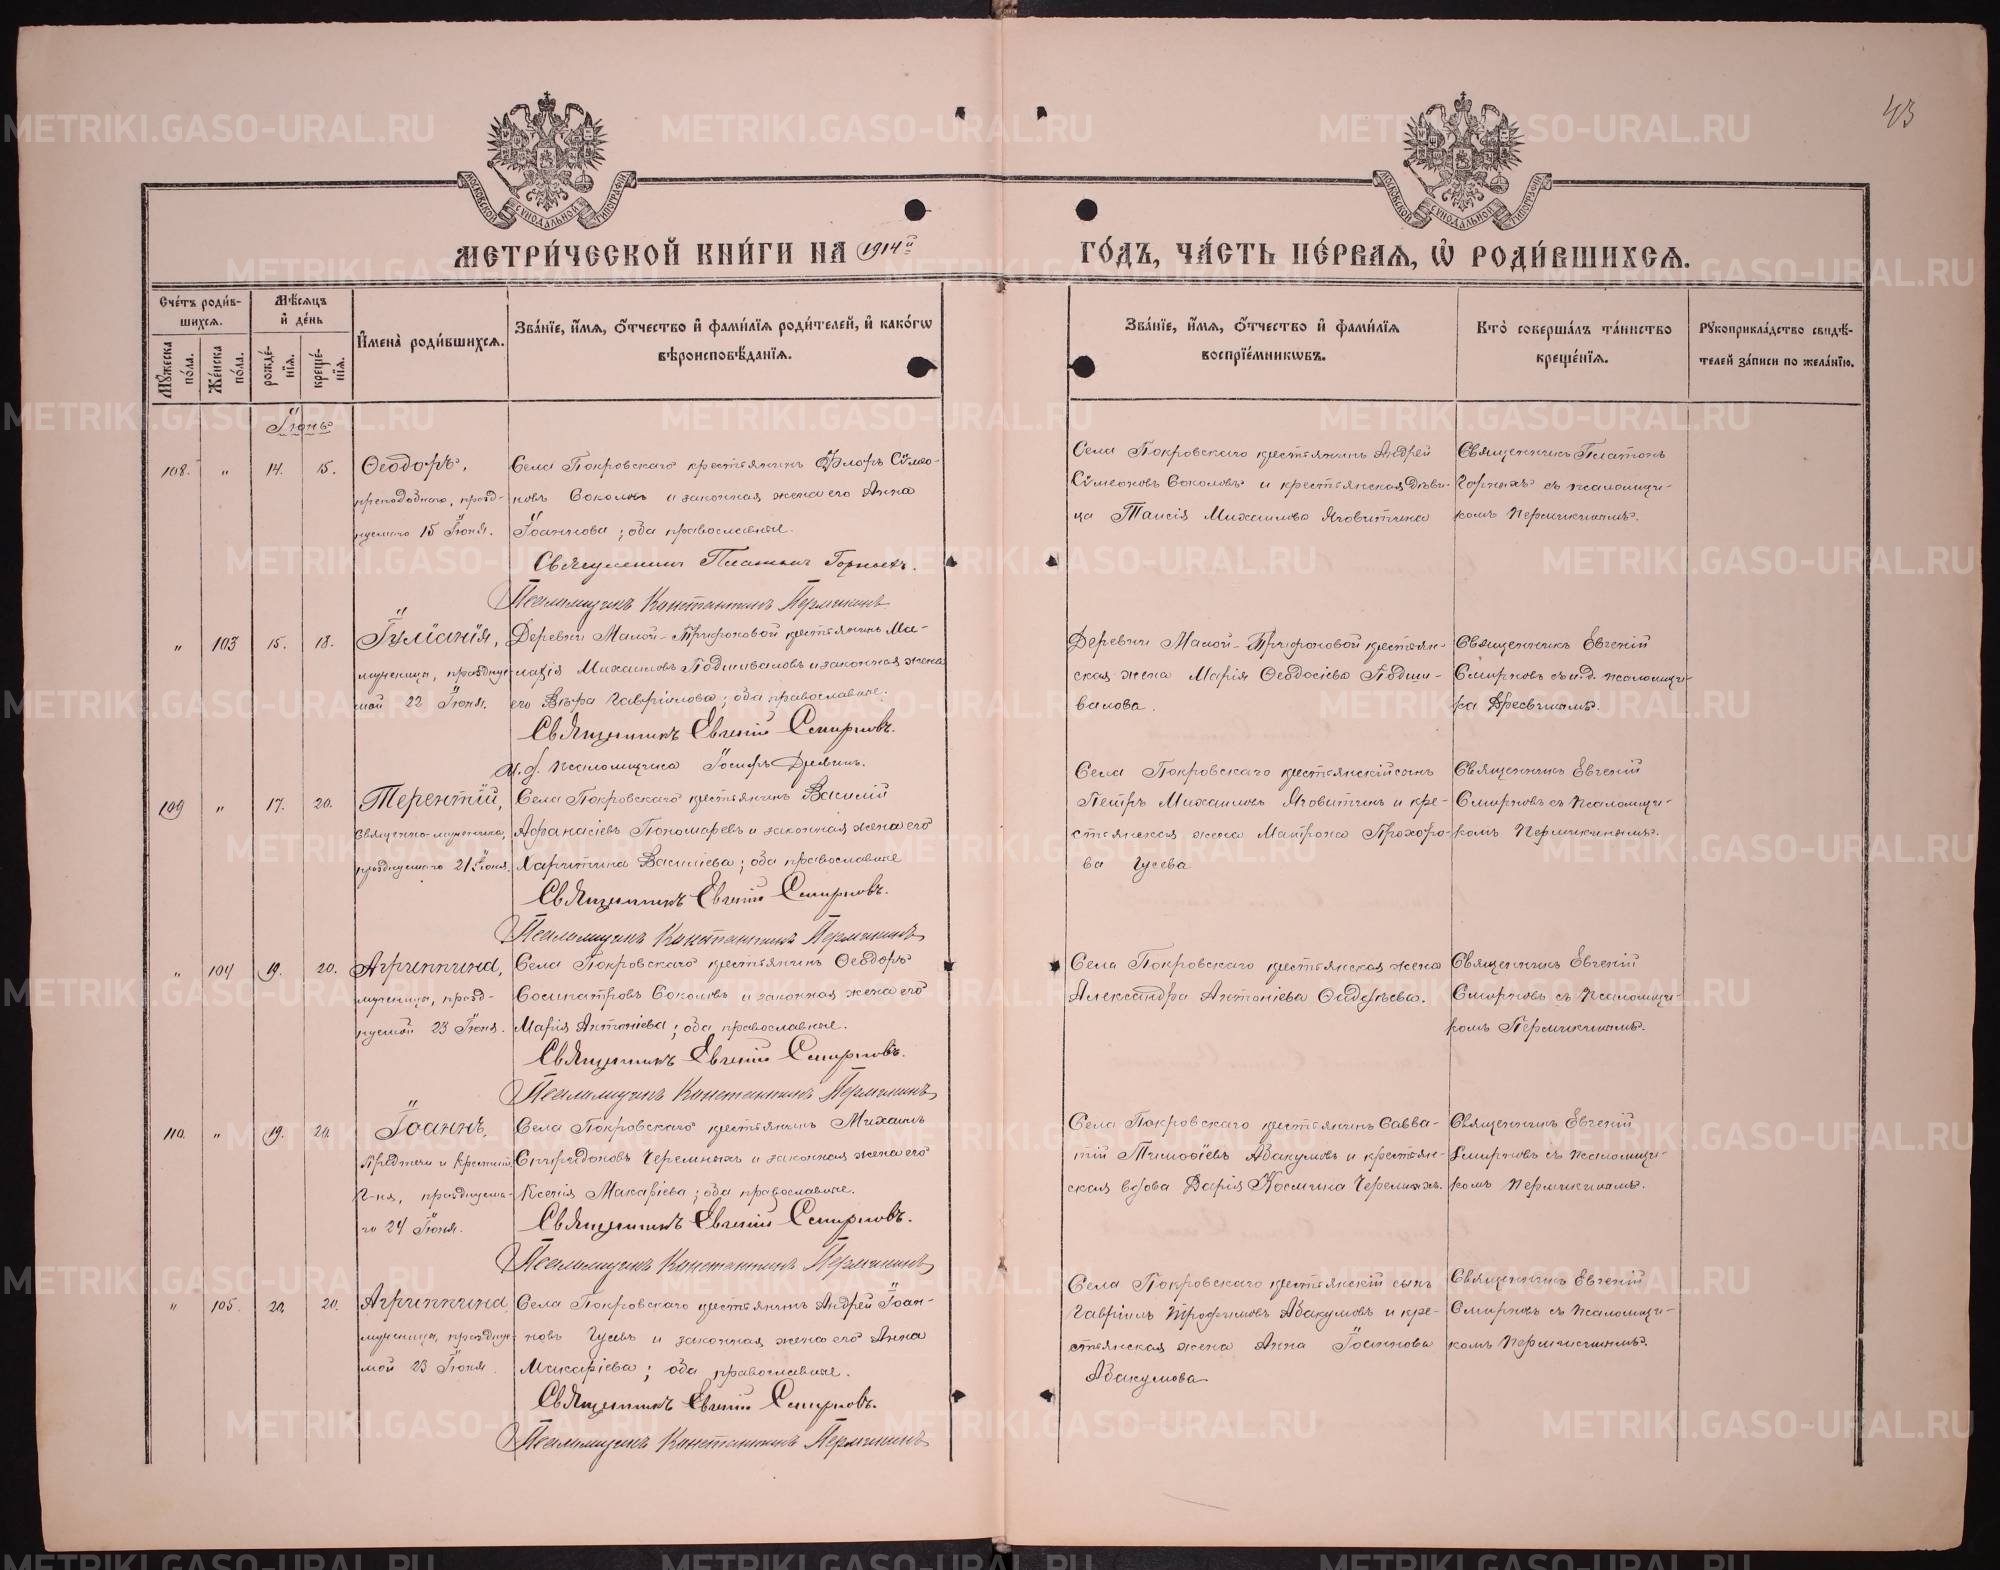 43
МОСКОВСКОЙ СѴНОДАЛЬНОЙ ТИПОГРАФІИ
МОСКОВСКОЙ СѴНОДАЛЬНОЙ ТИПОГРАФІИ
МЕТРИ́ЧЕСКОЙ КНИ́ГИ НА 1914й
ГО́ДЪ, ЧА́СТЬ ПЕ́РВАѦ, Ѡ҆ РОДИ́ВШИХСѦ.
Сче́тъ роди́в-
шихсѧ.
Мꙋ́жеска по́ла.
Же́нска по́ла.
Мѣ́сѧцъ
и҆ де́нь
рожде́-
нїѧ.
креще́-
нїѧ.
И҆мена̀ роди́вшихсѧ.
Зва́нїе, и҆́мѧ, ѻ҆́тчество и҆ фами́лїѧ роди́телей, и҆ како́гѡ
вѣроисповѣ́данїѧ.
Зва́нїе, и҆́мѧ, ѻ҆́тчество и҆ фами́лїѧ
воспрїе́мникѡвъ.
Кто̀ соверша́лъ та́инство
креще́нїѧ.
Рꙋкоприкла́дство свидѣ́-
телей за́писи по жела́нїю.
Іюнь
108. " 14. 15.
Ѳеодоръ,
преподобнаго, празд-
нуемаго 15 Іюня.
Села Покровскаго крестьянинъ Флоръ Сѵмео-
новъ Соколовъ и законная жена его Анна
Іоаннова; оба православные.
Священникъ Платонъ Горныхъ.
Псаломщикъ Константинъ Пермикинъ
Села Покровскаго крестьянинъ Андрей
Сѵмеоновъ Соколовъ и крестьянская дѣви-
ца Таисія Михаилова Яговитина
Священникъ Платонъ
Горныхъ съ псаломщи-
комъ Пермикинымъ.
" 103 15. 18.
Іуліанія,
мученицы, праздну-
мой 22 Іюня.
Деревни Малой-Трифоновой крестьянинъ Ма-
лахія Михаиловъ Подшиваловъ и законная жена
его Вѣра Гавріилова; оба православные.
Священникъ Евгеній Смирновъ.
и.д. псаломщика Іосифъ
Деревни Малой-Трифоновой крестьян-
ская жена Марія Ѳеодосіева Подши-
валова.
Священникъ Евгеній
Смирновъ съ и.д. псаломщи-
ка
109 " 17. 20.
Терентій,
Священно-мученика,
празднуемаго 21 Іюня.
Села Покровскаго крестьянинъ Василій
Афанасіевъ Пономаревъ и законная жена его
Харитина Василіева; оба православные
Священникъ Евгеній Смирновъ.
Псаломщикъ Константинъ Пермикинъ
Села Покровскаго крестьянскій сынъ
Петръ Михаиловъ Яговитинъ и кре-
стьянская жена Матрона Прохоро-
ва Гусева
Священникъ Евгеній
Смирновъ съ псаломщи-
комъ Пермикинымъ.
" 104 19. 20.
Агриппина,
мученицы, празд-
нуемой 23 Іюня.
Села Покровскаго крестьянинъ Ѳеодоръ
Сосипатровъ Соколовъ и законная жена его
Марія Антоніева; оба православные.
Священникъ Евгеній Смирновъ.
Псаломщикъ Константинъ Пермикинъ
Села Покровскаго крестьянская жена
Александра Антоніева
Священникъ Евгеній
Смирновъ съ псаломщи-
комъ Пермикинымъ.
110. " 19. 20.
Іоаннъ,
Предтечи и Крестит.
Г-ня, празднуема-
го 24 Іюня.
Села Покровскаго крестьянинъ Михаилъ
Спиридоновъ Черемныхъ и законная жена его
Ксенія Макаріева; оба православные.
Священникъ Евгеній Смирновъ.
Псаломщикъ Константинъ Пермикинъ
Села Покровскаго крестьянинъ Савва-
тій Тимоѳіевъ Абакумовъ и крестьян-
ская вдова Дарія Космина Черемныхъ.
Священникъ Евгеній
Смирновъ съ псаломщи-
комъ Пермикинымъ.
" 105. 20. 20.
Агриппина,
мученицы, праздну-
мой 23 Іюня.
Села Покровскаго крестьянинъ Андрей Іоан-
новъ Гусевъ и законная жена его Анна
Макаріева; оба православные.
Священникъ Евгеній Смирновъ.
Псаломщикъ Константинъ Пермикинъ
Села Покровскаго крестьянскій сынъ
Гавріилъ Трофимовъ Абакумовъ и кре-
стьянская жена Анна Іоаннова
Абакумова
Священникъ Евгеній
Смирновъ съ псаломщи-
комъ Пермикинымъ.
METRIKI.GASO-URAL.RU